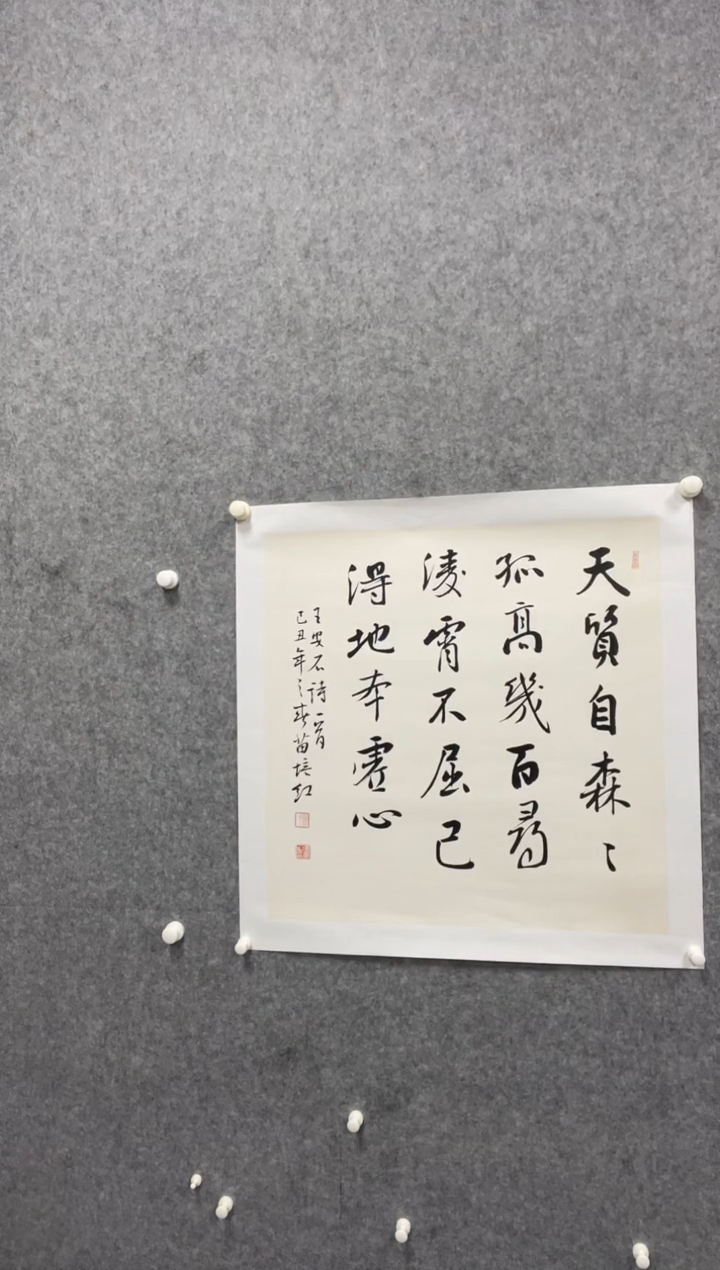 天質自森〻
孤高幾百尋
凌霄不屈己
得地本虛心
王安石詩一首
己丑年之春苗培红